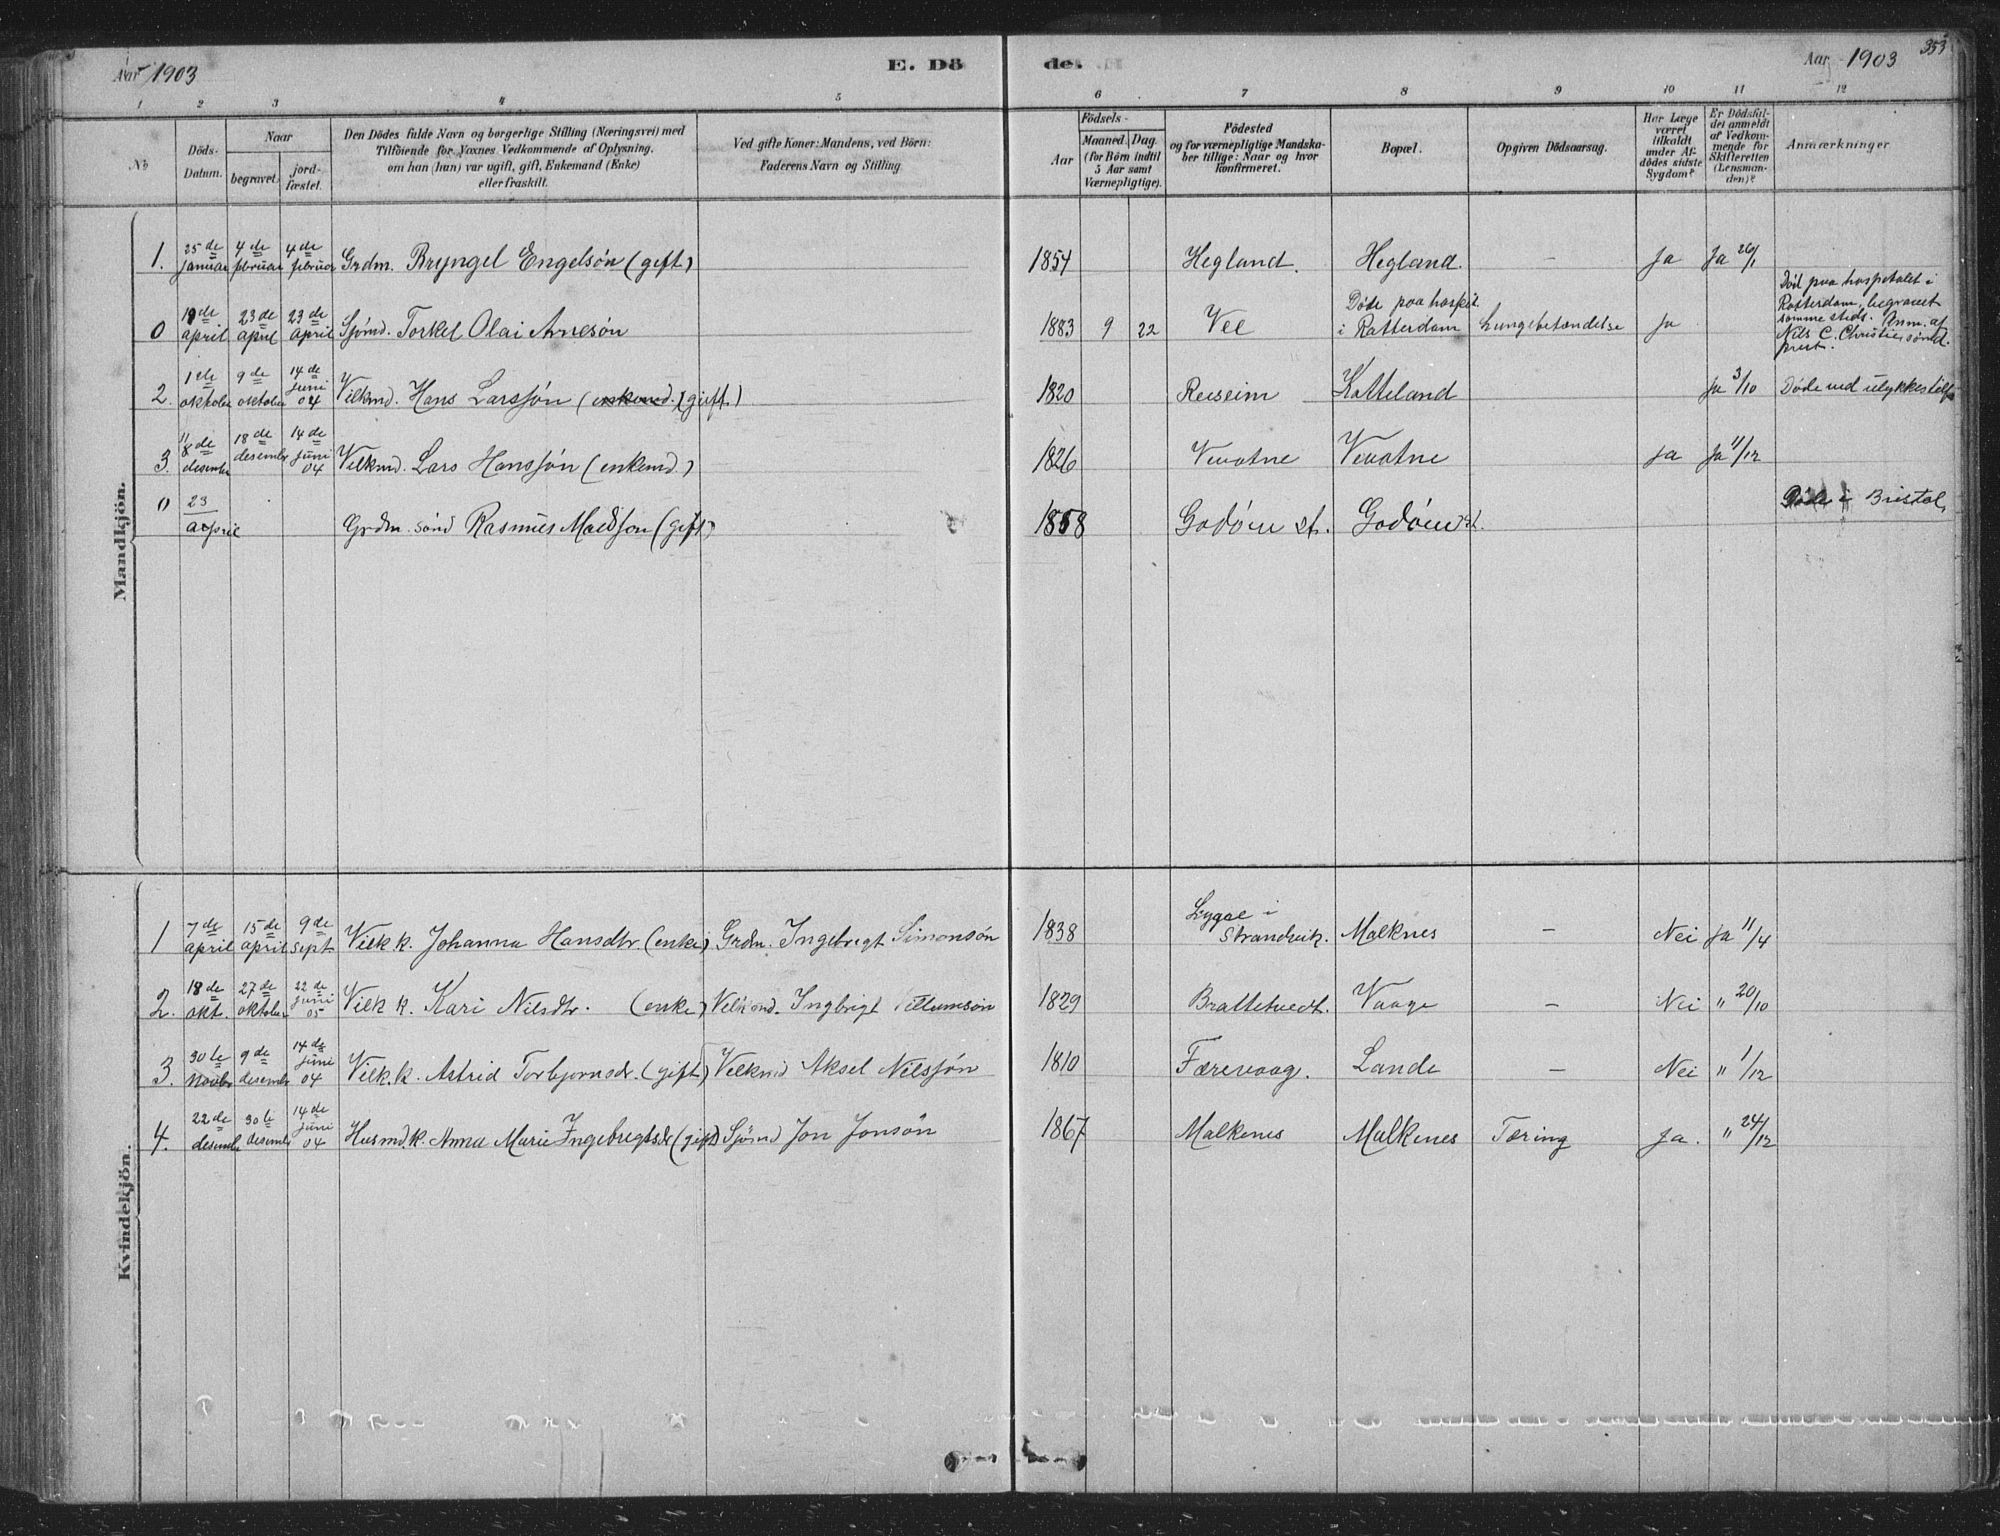 Aar 1903
E. Dö
de.
Aar 1903
353
1 2 3 4 5 6 7 8 9 10 11 12
№
Döds-
Datum.
Naar
begravet.
jord-
fæstet.
Den Dödes fulde Navn og borgerlige Stilling (Næringsvei) med
Tilföiende for Voxnes Vedkommende af Oplysning,
om han (hun) var ugift, gift, Enkemand (Enke)
eller fraskilt.
Ved gifte Koner: Mandens, ved Börn:
Faderens Navn og Stilling.
Födsels-
Aar
Maaned. Dag.
(for Börn indtil
5 Aar samt
Værnepligtige).
Födested
og for værnepligtige Mandska-
ber tillige: Naar og hvor
konfirmeret.
Bopæl.
Opgiven Dödsaarsag.
Har Læge
været
tilkaldt
under Af-
dödes sidste
Sygdom?
Er Dödsfal-
det anmeldt
af Vedkom-
mende for
Skifteretten
(Lensman-
den)?
Anmærkninger
Mandkjön.
1. 25de januar 4de februar 4de februar Grdm. Bryngel Engelsøn (gift) 1854 Hegland. Hegland. – Ja Ja 26/1
0 19de april 23de april 23de april Sjømd. Torkel Olai Arnesøn 1883 9 22 Vee Døde paa hospit. i Rotterdam Lungebetændelse Ja Død paa hospitalet i
Rotterdam, begravet
samme steds. Anm. af
Nils C. Christiessønd.
prest.
2. 1ste oktober 9de oktober 14de juni 04 Vilkmd. Hans Larssøn (enkemd.) (gift) 1820 Reiseim Kotteland Ja 3/10 Døde ved ulykkestilf.
3. 8de desember 18de desembr 14de juni 04 Vilkmd. Lars Hanssøn (enkemd) 1826 Vevatne Vevatne Ja Ja 11/12
0 23 april Grdm. sønd Rasmus Madsson (gift) 1858 Godøen st. Godøen st. Døde i Bristol
Kvindekjön.
1 7de april 15de april 9de sept. Vilk k. Johanna Hansdtr. (enke) Grdm. Ingebrigt Simonsøn 1838 Lygre i Strandvik. Malknes – Nei Ja 11/4
2. 18de okt. 27de oktober 22de juni 05 Vilk k. Kari Nilsdtr. (enke) Vilkmd. Ingbrigt Villumsøn 1829 Brattetvedt. Vaage – Nei " 20/10
3. 30te novbr 9de desembr 14de juni 04 Vilk. k. Astrid Torbjørnsdr. (gift) Vilkmd Aksel Nilssøn 1810 Færevaag. Lande – Nei " 1/12
4. 22de desember 30te desembr 14de juni 04 Husmd. k. Anna Marie Ingebregtsdr (gift) Sjømd Jon Jonsøn 1867 Malkenes Malkenes Tæring Ja. " 24/12